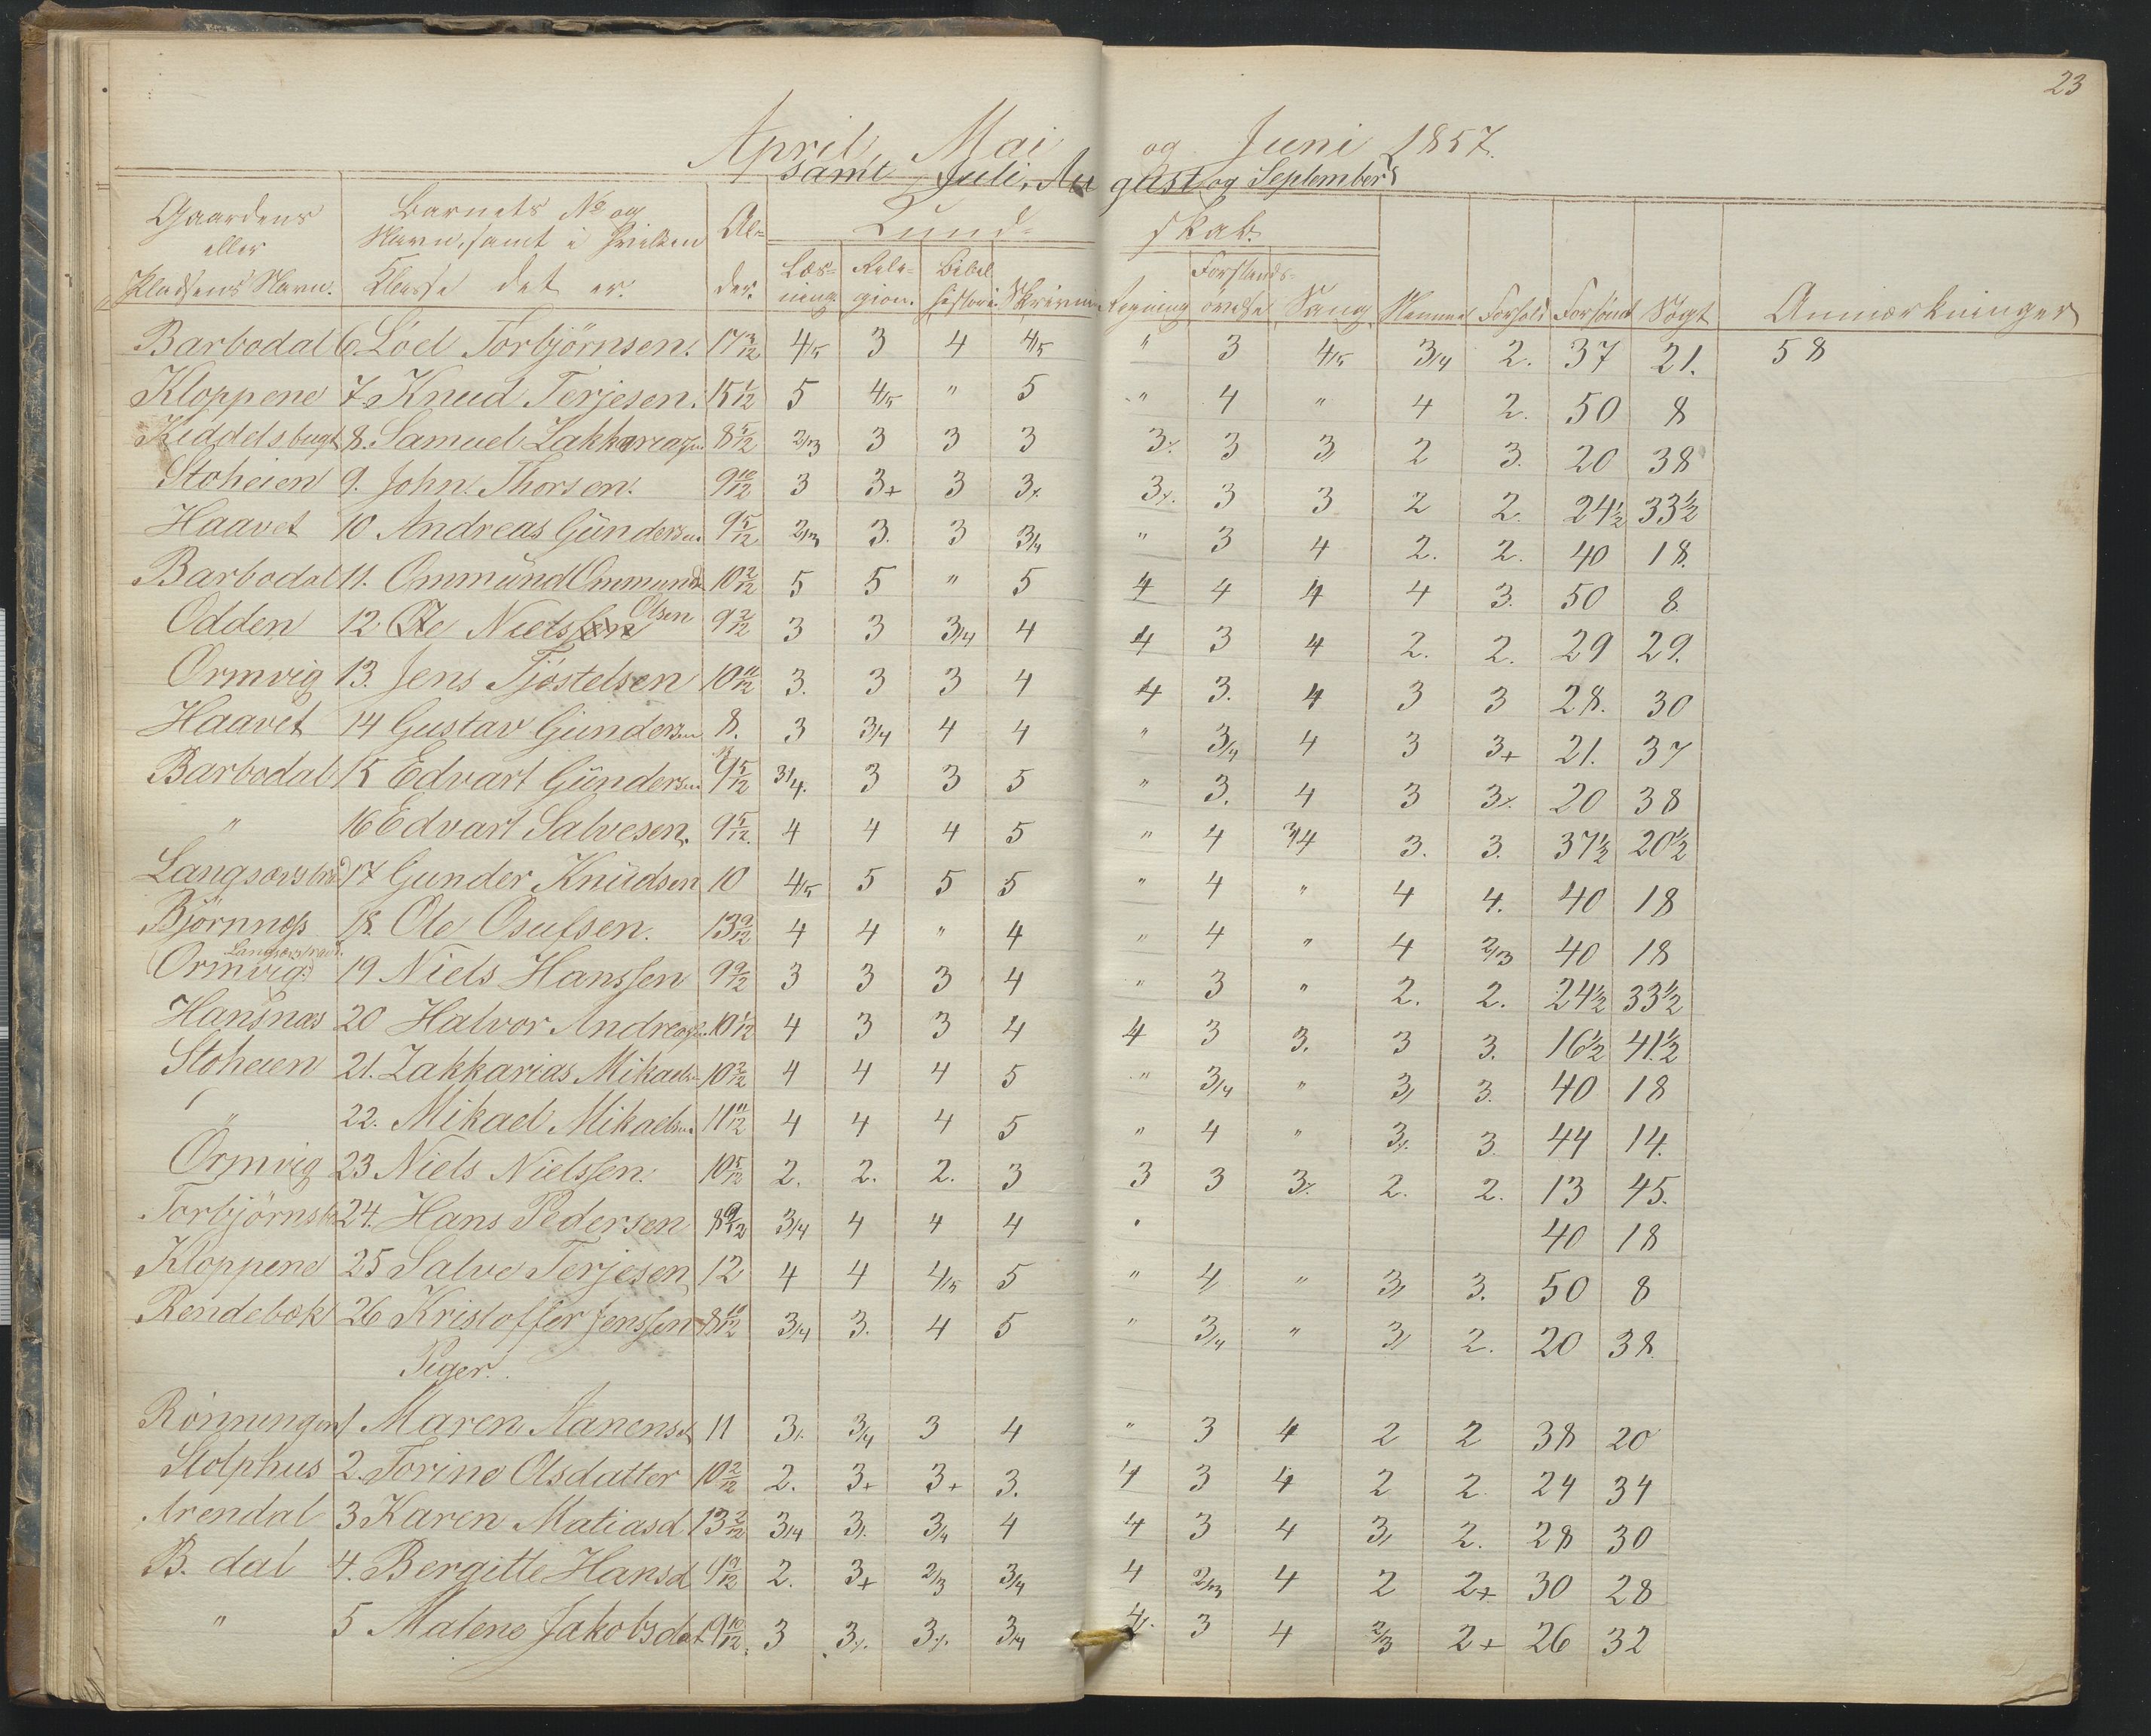 23
April, Mai og Juni 1857.
samt Juli, August og September
Gaardens eller Pladsens Navn. Barnets No og Navn, samt i hvilken Klasse det er. Al-der. Kund-skab.
Læs-ning. Reli-gion. Bibel historie. Skrivni Regning Forstands-øvelse Sang Nemme Forhold Forsømt Søgt Anmærkninger
Barbodal 6 Löel Torbjörnsen. 17 3/12 4/5 3 4 4/5 " 3 4/5 3/4 2. 37 21. 58
Kloppene 7 Knud Terjesen. 15 1/12 5 4/5 " 5 " 4 " 4 2. 50 8
Kiddelsbugt 8. Samuel Zakkariasn. 8 5/12 2/3 3 3 3 3⁒ 3 3 2 3. 20 38
Stoheien 9. John. Thorsen. 9 10/12 3 3+ 3 3⁒ 3⁒ 3 3 2 2. 24½ 33½
Haavet 10 Andreas Gündersn. 9 5/12 2/3 3. 3 3/4 " 3 4 2. 2. 40 18.
Barbodal 11. Ommünd Ommunds 10 2/12 5 5 " 5 4 4 4 4 3. 50 8.
Odden 12 Ole Nielssen Olsen 9 2/12 3 3 3/4 4 4 3 4 2. 2. 29 29.
Ormvig 13. Jens Tjöstelsen 10 11/12 3. 3 3 4 4 3. 4 3 3 28. 30
Haavet 14 Gustav Gundersen 8. 3 3/4 4 4 " 3/4 4 3 3+ 21. 37
Barbodal 15 Edvart Gündersen 9 5/12 3/4. 3 3 5 " 3. 4 3 3⁒ 20 38
" 16 Edvart Salvesen. 9 5/12. 4 4 4 5 " 4 3/4 3. 3. 37½ 20½
17 Gunder Knüdsen 10 4/5 5 5 5 " 4 " 4 4. 40 18
Björnnæs 18. Ole Osufsen. 13 9/12 4 4 " 4 " 4 " 4 2/3 40 18
Langsævstrand.
(Ormvig.) 19 Niels Hanssen 9 9/12 3 3 3 4 " 3 " 2. 2. 24½ 33½
Hansnæs 20 Halvor Andreasn. 10 1/12 4 3 3 4 4 3 3. 3 3. 16½ 41½
Stoheien 21. Zakkarias Mikaels 10 2/12 4 4 4 5 " 3/4 " 3/ 3. 40 18
" 22. Mikael Mikaelsn. 11 11/12 4 4 4 5 " 4 " 3⁒ 3 44 14.
Ormvig 23 Niels Nielssen. 10 5/12 2. 2. 2. 3 3 3 3⁒ 2. 2. 13 45.
24. Hans Pedersen 8 9/12 3/4 4 4 4 40 18
Kloppene 25 Salve Terjesen 12 4 4 4/5 5 " 4/ " 3/ 3. 50 8
Rendebæk 26 Kristoffer Jenssen 8 10/12 3/4 3. 4 5 " 3/4 " 3/ 2. 20 38.
Piger.
Rönningen 1 Maren Aanensd 11 3⁒ 3/4 3 4 " 3 4 2 2 38 20
Stølphus 2. Torine Olsdatter 10 2/12 2. 3+ 3+ 3. 4 3 4 2 2. 24 34
Arendal 3 Karen Matiasd 13 2/12 3/4 3⁒ 3/4 4 4 3 4 3/ 2. 28 30
B. dal 4. Bergitte Hansd 9 9/12 2. 3+ 2/3 3/4 4 2/3 4 2 2+ 30 28
" 5 Malene Jakobsdat 9 10/12 3 3⁒ 3⁒ 3/4 4⁒ 3 4 2/3 2+ 26 32